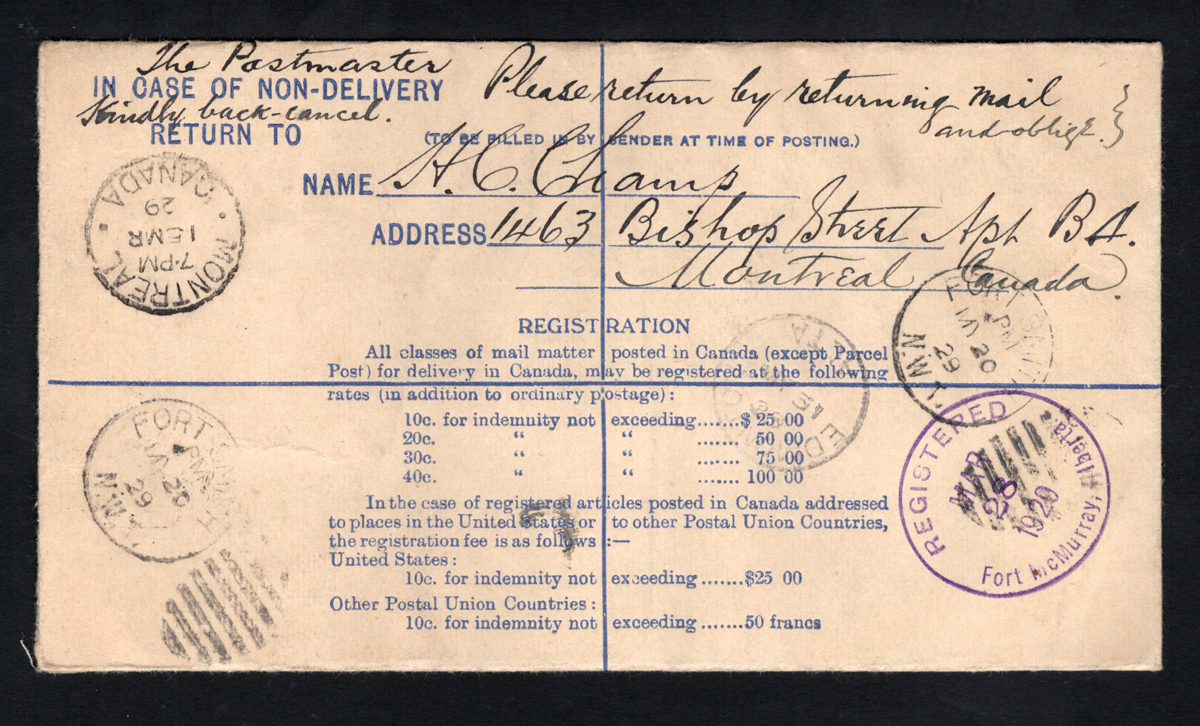 The Postmaster
IN CASE OF NON-DELIVERY
Please return by returning mail
Kindly back-cancel.
and oblige.
RETURN TO
(TO BE FILLED IN BY SENDER AT TIME OF POSTING.)
NAME H. C. Champ
ADDRESS 1463 Bishop Street Apt B4.
Montreal Canada.
MONTREAL
7-PM
15 MR
29
CANADA
FORT
PM
MY 20
29
N.W.T.
REGISTRATION
All classes of mail matter posted in Canada (except Parcel
Post) for delivery in Canada, may be registered at the following
rates (in addition to ordinary postage):
10c. for indemnity not exceeding.......$ 25 00
20c. " " ...... 50 00
30c. " " ...... 75 00
40c. " " ...... 100 00
In the case of registered articles posted in Canada addressed
to places in the United States or to other Postal Union Countries,
the registration fee is as follows :—
United States :
10c. for indemnity not exceeding.......$25 00
Other Postal Union Countries :
10c. for indemnity not exceeding.......50 francs
FORT
PM
MY 20
29
N.W.T.
REGISTERED
MAR
26
1929
Fort McMurray, Alberta